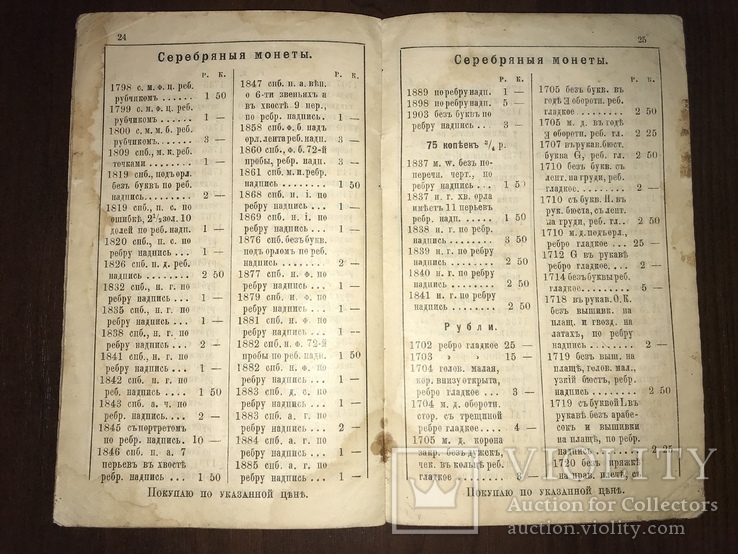 24
Серебряныя монеты.
Р. К.
1798 с. м. ф. ц. реб.
рубчикомъ ...... 1 50
1799 с. м. ф. ц. реб.
рубчикомъ ...... 1 —
1800 с. м. м. б. реб.
рубчикомъ ...... 3 —
1809 спб., м. к. реб.
точками ........ 1 —
1819 спб., подъ орл.
безъ буквъ по реб.
надпись ........ 2 —
1819 спб., п. с. по
ошибкѣ, 2½ зол. 10
долей по реб. надп. 1 —
1820 спб., п. с. по
ребру надпись .. 1 —
1826 спб. н. д. реб.
надпись ........ 2 50
1832 спб., н. г. по
ребру надпись .. 1 —
1835 спб., н. г. по
ребру надпись .. 1 —
1838 спб., н. г. по
ребру надпись .. 2 —
1841 спб., н. г. по
ребру надпись .. 1 —
1842 спб. н. г. по
реб. надпись ... 1 50
1843 спб. а. ч. по
реб. надпись ... 2 —
1845 съ портретомъ
по ребру надпись. 10 —
1846 спб. п. а. 7
перьевъ въ хвостѣ
реб. надпись ... 1 50
Р. К.
1847 спб. п. а. вѣн.
о 6-ти звеньяхъ и
въ хвостѣ 9 пер.,
по ребр. надпись. 1 —
1858 спб. ф. б. надъ
орл. лента реб. надп. 3 —
1860 спб., ф. б. 72-й
пробы, ребр. надп. 3 —
1861 спб. м. и. ребр.
надпись ........ 1 50
1868 спб. н. і. по
ребру надпись ... 1 —
1869 спб. н. і. по
ребру надпись ... 1 —
1876 спб. безъ букв.
подъ орломъ по реб.
надпись ........ 2 —
1877 спб. н. ф. по
ребру надпись ... 1 —
1879 спб. н. ф. по
ребру надпись ... 1 —
1881 спб. н. ф. по
ребру надпись ... 1 —
1882 спб. н. ф. 72-й
пробы по реб. надп. 1 50
1882 спб. н. ф. по
ребру надпись ... 1 —
1883 спб. д. с. по
ребру надпись ... 1 —
1883 спб. а. г. по
ребру надпись ... 1 —
1884 спб. а. г. по
ребру надпись ... 1 —
1885 спб. а. г. по
ребру надпись ... 1 —
Покупаю по указанной цѣнѣ.
25
Серебряныя монеты.
Р. К.
1889 по ребру надп. 1 —
1898 по ребру надп. 5 —
1903 безъ букв по
ребру надпись ... 3 —
75 копѣекъ ¾ р.
1837 м. w. безъ по-
перечн. черт., по
ребру надпись ... 1 50
1837 н. г. хв. орла
имѣетъ 11 перьевъ
ребр. надп. .... 1 50
1838 н. г. по ребр.
надпись ........ 3 50
1839 н. г. по ребру
надпись ........ 2 50
1840 н. г. по ребру
надпись ........ 2 50
1841 н. г. по ребру
надпись ........ 2 50
Рубли.
1702 ребро гладкое 25 —
1703 » 15 —
1704 голов. малая,
кор. внизу открыта,
ребро гладкое ... 3 —
1704 м. д. оборотн.
стор. съ трещиной
ребро гладкое ... 4 —
1705 м. д. корона
закр. безъ дужекъ,
чек. въ кольцѣ реб.
гладкое
Р. К.
1705 безъ букв. въ
годѣ З оборотн. реб.
гладкое ........ 2 50
1705 м. д. въ годѣ
З оборотн. реб. гл. 2 25
1707 въ рукав.бюст.
буква G, реб. гл. 2 50
1710 безъ букв. съ
лент. на груди, реб.
гладкое ........ 2 —
1710 съ букв. Н. въ
рук. бюста, съ лент.
на груди, реб. гл. 2 50
1710 м. д. подъ орл.,
ребро гладкое ... 25 —
1712 G въ рукавѣ
ребро гладкое ... 2 —
1714 безъ буквы реб.
гладкое ........ 5 —
1718 въ рукав. О.К.
безъ вышивк. на
плащ. и гвозд. на
латах., по ребр.
надпись ........ 2 —
1719 безъ выш. на
плащѣ, голов. мал.,
узкій бюстъ, ребр.
надпись ........ 2 50
1719 съ буквой L въ
рукавѣ безъ арабе-
сокъ и вышивки
на плащѣ, по ребр.
надпись ........ 2 25
безъ пряжк.
на прав. плечѣ, съ
Покупаю по указанной цѣнѣ.
VIOLITY
Auction for Collectors
auction.violity.com